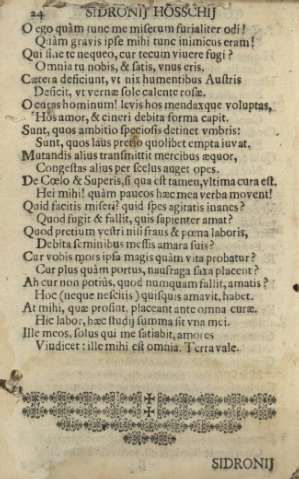 24 SIDRONIJ HOSSCHIJ
O ego quàm tunc me miserum furialiter odi!
Quàm gravis ipse mihi tunc inimicus eram!
Qui sine te nequeo, cur tecum vivere fugi?
Omnia tu nobis, & satis, vnus eris.
Cætera deficiunt, vt nix humentibus Austris
Deficit, vt vernæ sole calente rosæ.
O curas hominum! levis hos mendaxque voluptas,
Hos amor, & cineri debita forma capit.
Sunt, quos ambitio speciosis detinet vmbris:
Sunt, quos laus pretio quolibet empta iuvat.
Mutandis alius transmittit mercibus æquor,
Congestas alius per scelus auget opes.
De Cœlo & Superis, si qua est tamen, vltima cura est.
Hei mihi! quàm paucos hæc mea verba movent!
Quid facitis miseri? quid spes agitatis inanes?
Quod fugit & fallit, quis sapienter amat?
Quod pretium vestri nisi fraus & pœna laboris,
Debita seminibus messis amara suis?
Cur vobis mors ipsa magis quàm vita probatur?
Cur plus quàm portus, naufraga saxa placent?
Ah cur non potiùs, quod numquam fallit, amatis?
Hoc (neque nescitis) quisquis amavit, habet.
At mihi, quæ prosint, placeant ante omnia curæ.
Hic labor, hæc studij summa sit vna mei.
Ille meos, solus qui me satiabit, amores
Vindicet: ille mihi est omnia. Terra vale.
SIDRONIJ